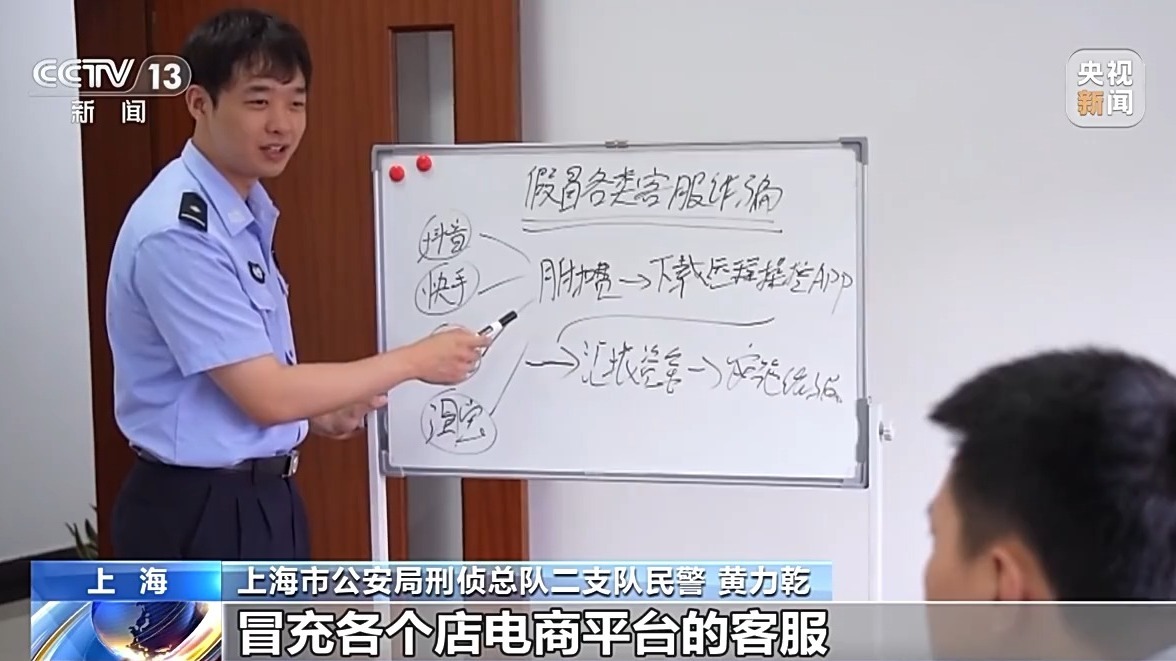 CCTV 13
新闻
央视
新闻
假冒各类客服诈骗
抖音
快手
淘宝
扣费→下载远程操控APP
→汇线资金→实施诈骗
上海
上海市公安局刑侦总队二支队民警 黄力乾
冒充各个店电商平台的客服